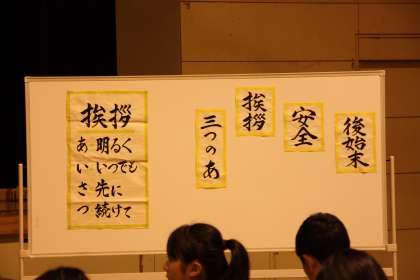 挨拶
あ 明るく
い いつでも
さ 先に
つ 続けて
三つのあ
挨拶
安全
後始末